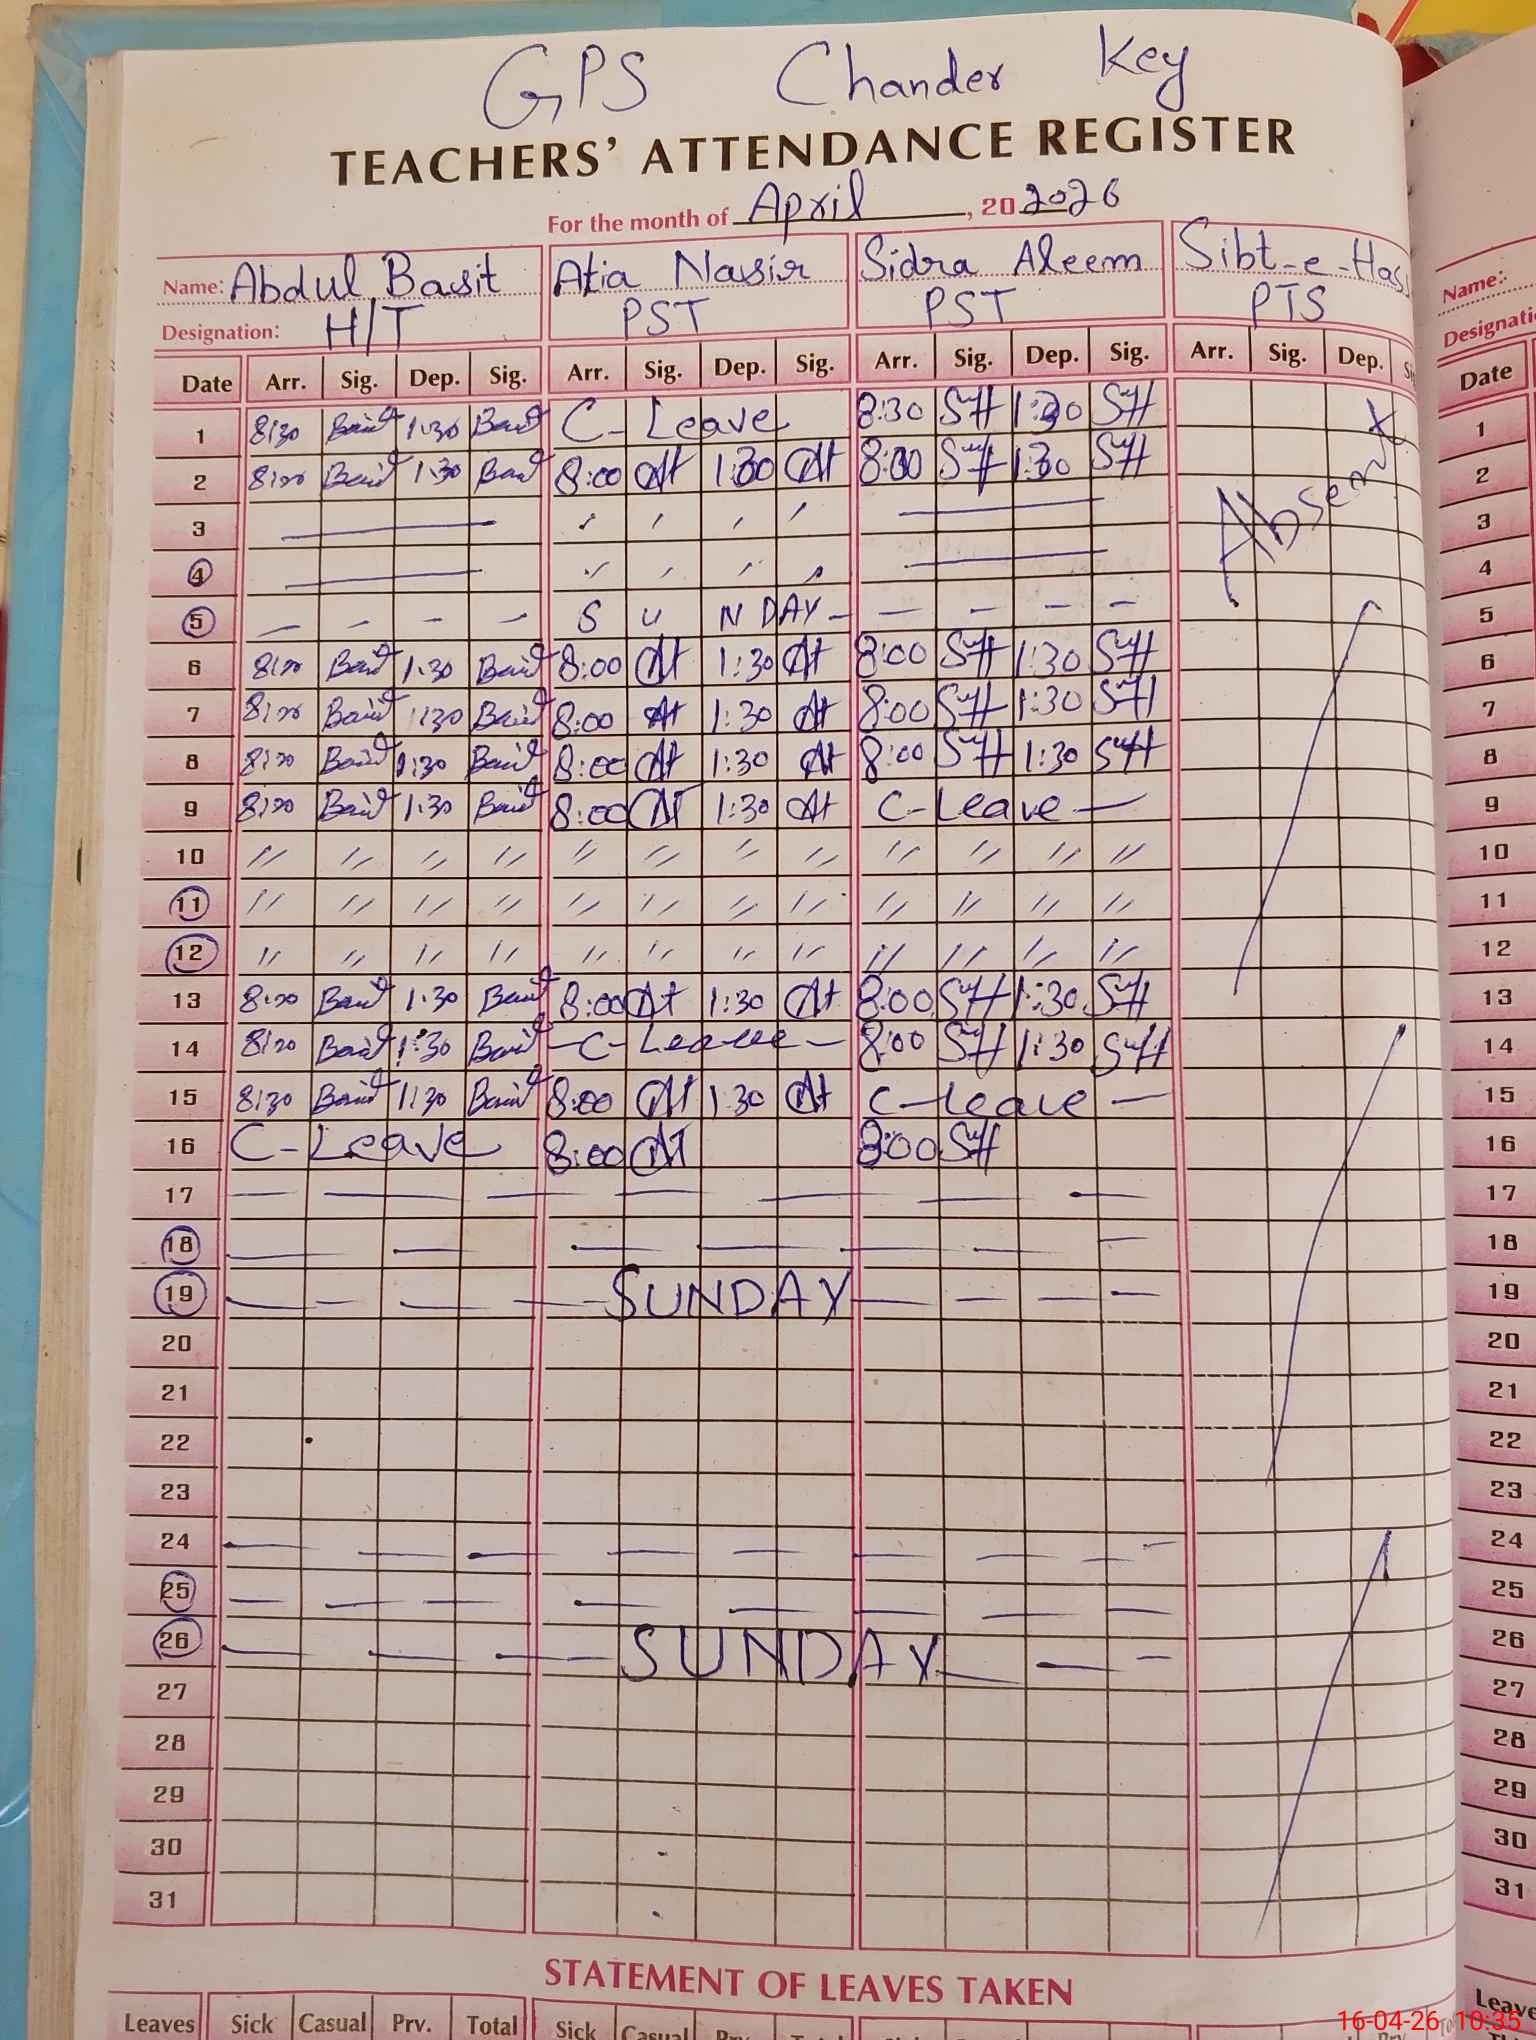 GPS Chander Key
TEACHERS' ATTENDANCE REGISTER
For the month of April, 20 2026
Name: Abdul Basit Atia Nasir Sidra Aleem Sibt-e-Has
Designation: H/T PST PST PTS
Date Arr. Sig. Dep. Sig. Arr. Sig. Dep. Sig. Arr. Sig. Dep. Sig. Arr. Sig. Dep.
1 8:30 Basit 1:30 Basit C- Leave 8:30 1:30
2 Basit 1:30 Basit 8:00 At 1:30 At 8:00 1:30
3
4
5 SUNDAY
6 Basit 1:30 Basit 8:00 At 1:30 At 8:00 1:30
7 Basit 1:30 Basit 8:00 At 1:30 At 8:00 1:30
8 Basit 1:30 Basit 8:00 At 1:30 At 8:00 1:30
9 Basit 1:30 Basit 8:00 At 1:30 At C-Leave
10 // // // // // // // // // // // //
11 // // // // // // // // // // // //
12 // // // // // // // // // // // //
13 Basit 1:30 Basit 8:00 At 1:30 At 8:00 1:30
14 Basit 1:30 Basit C-Leave 8:00 1:30
15 8:30 Basit 1:30 Basit 8:00 At 1:30 At C-Leave
16 C-Leave 8:00 At 8:00
17
18
19 SUNDAY
20
21
22
23
24
25
26 SUNDAY
27
28
29
30
31
Absent
STATEMENT OF LEAVES TAKEN
Leaves Sick Casual Prv. Total Sick Casual
Name:
Date
1
2
3
4
5
6
7
8
9
10
11
12
13
14
15
16
17
18
19
20
21
22
23
24
25
26
27
28
29
30
31
Leave
16-04-26 10:35